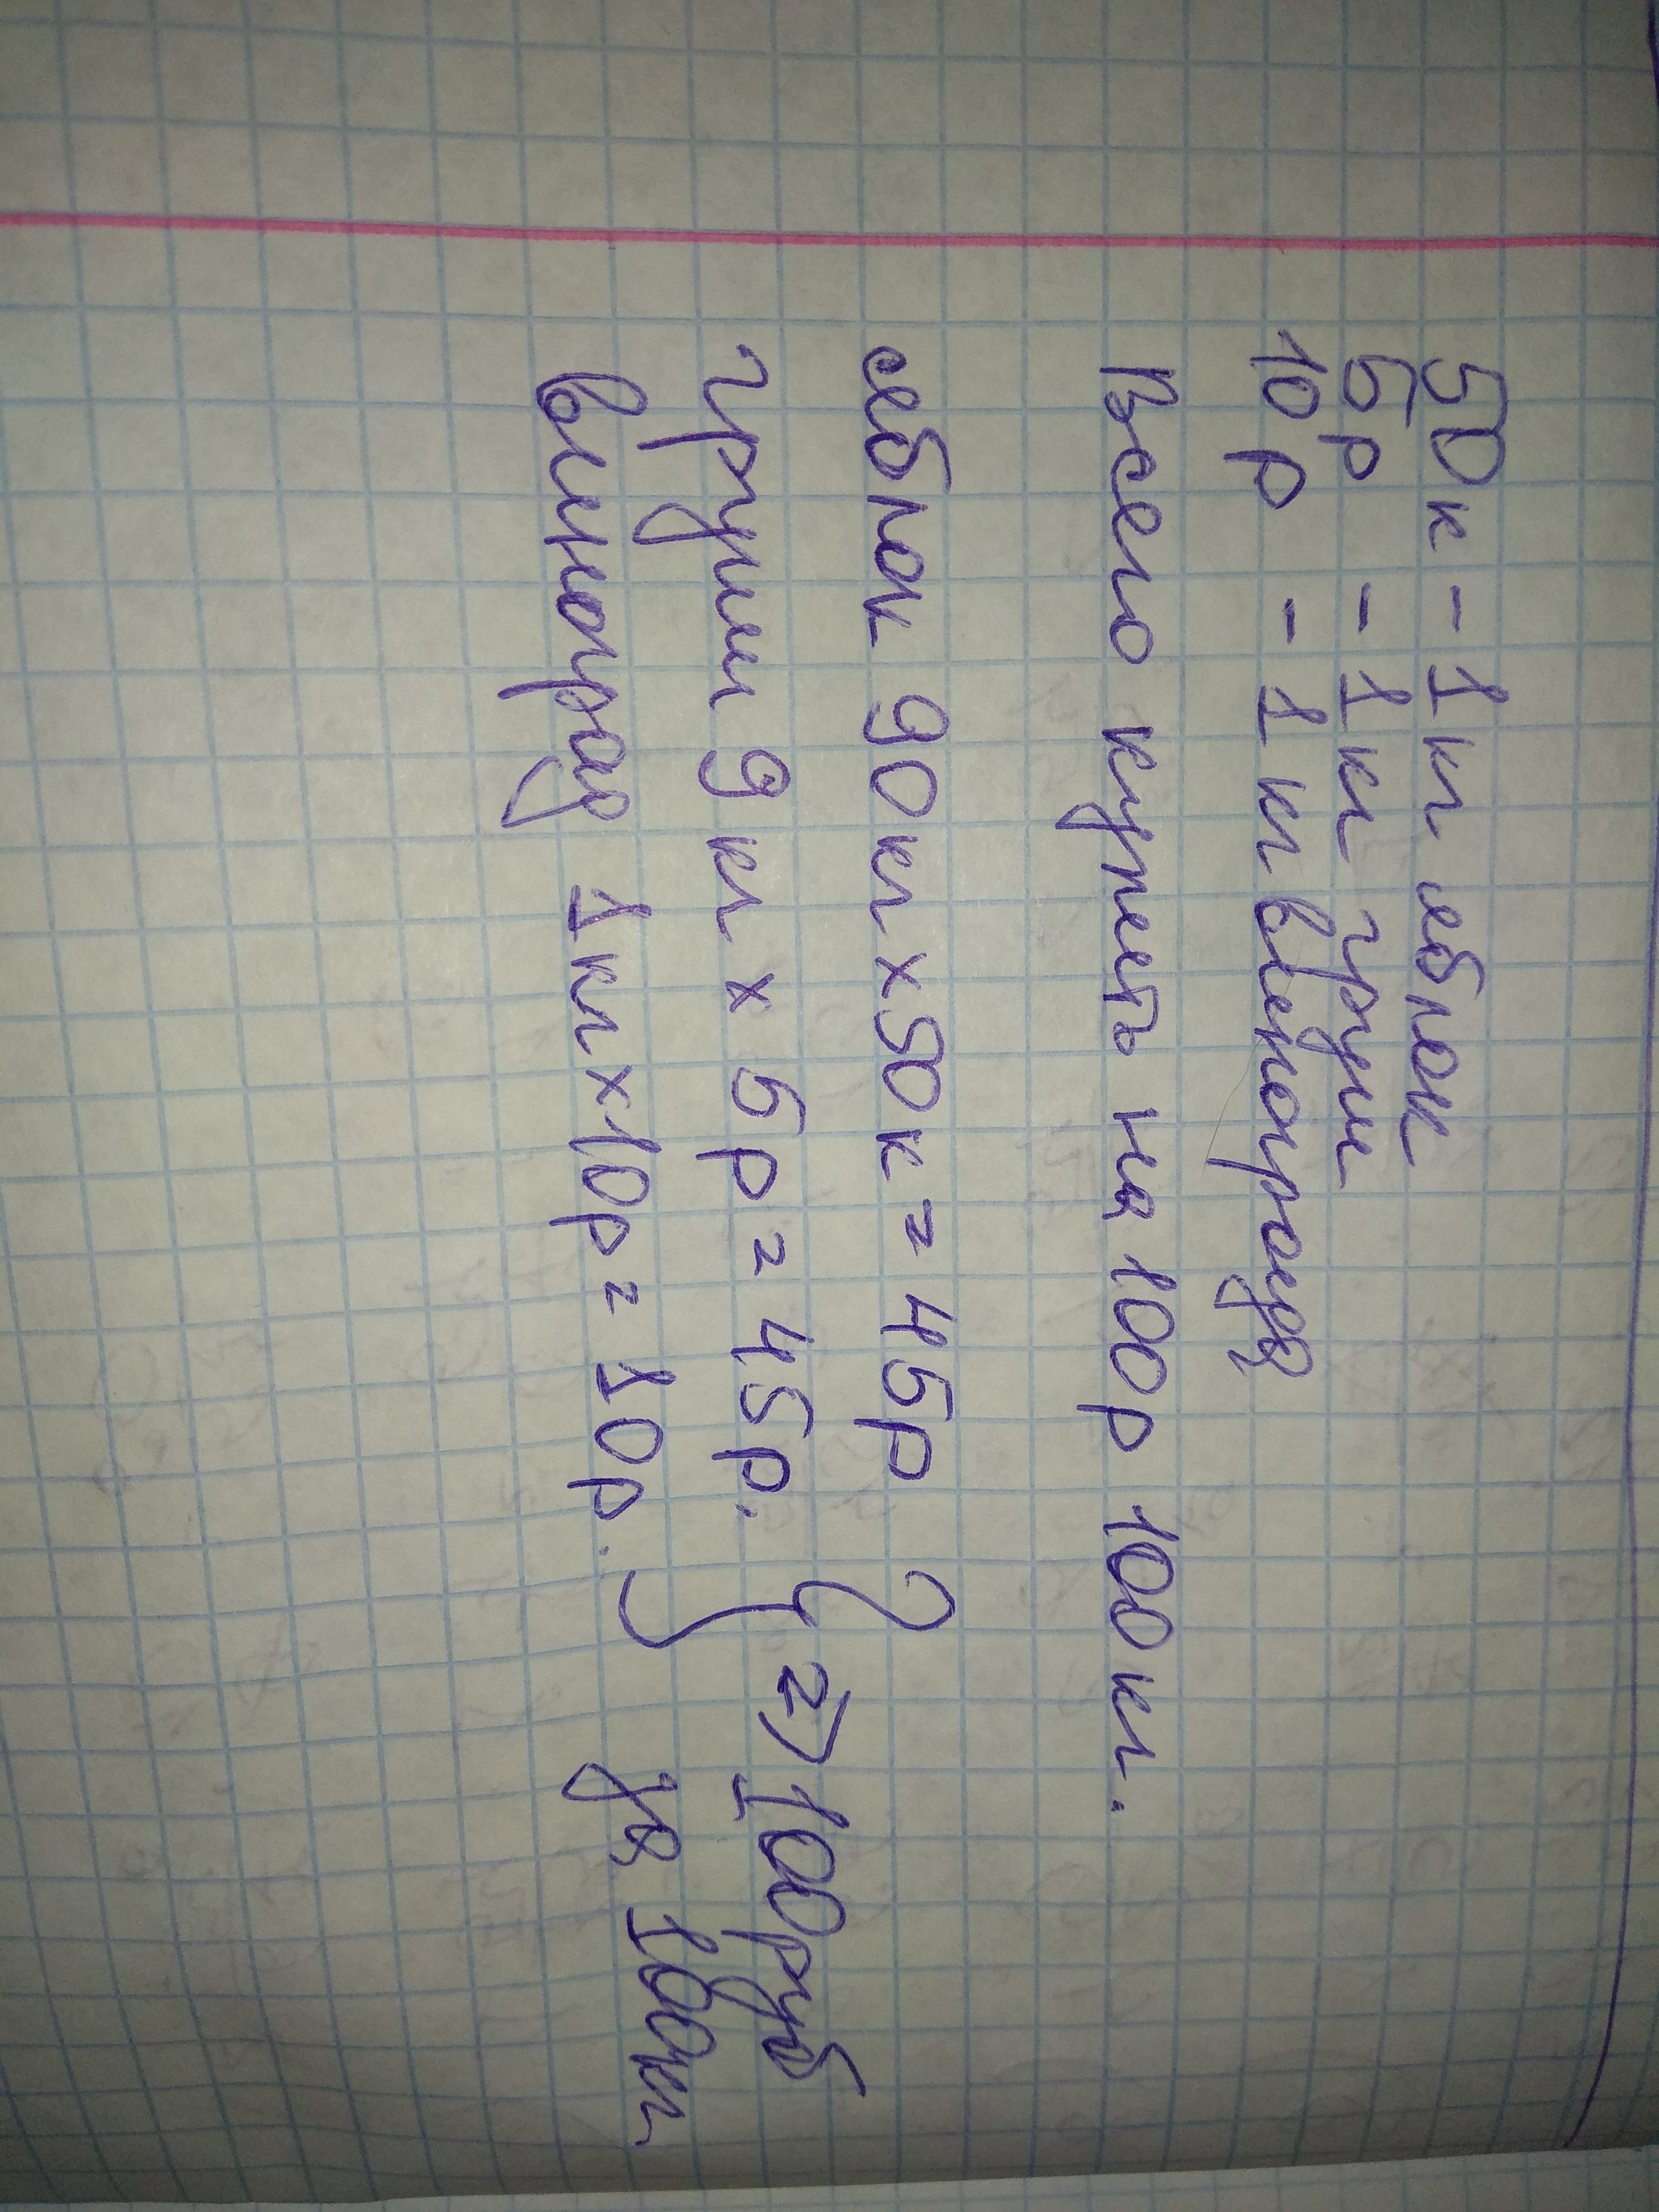 50к - 1 кг яблок
5р - 1кг груш
10р - 1 кг винограда
Всего купить на 100р 100кг.
яблок 90кг х 50к = 45р
груши 9 кг х 5р = 45р.
виноград 1кг х 10р = 10р.
=> 100руб
за 100кг